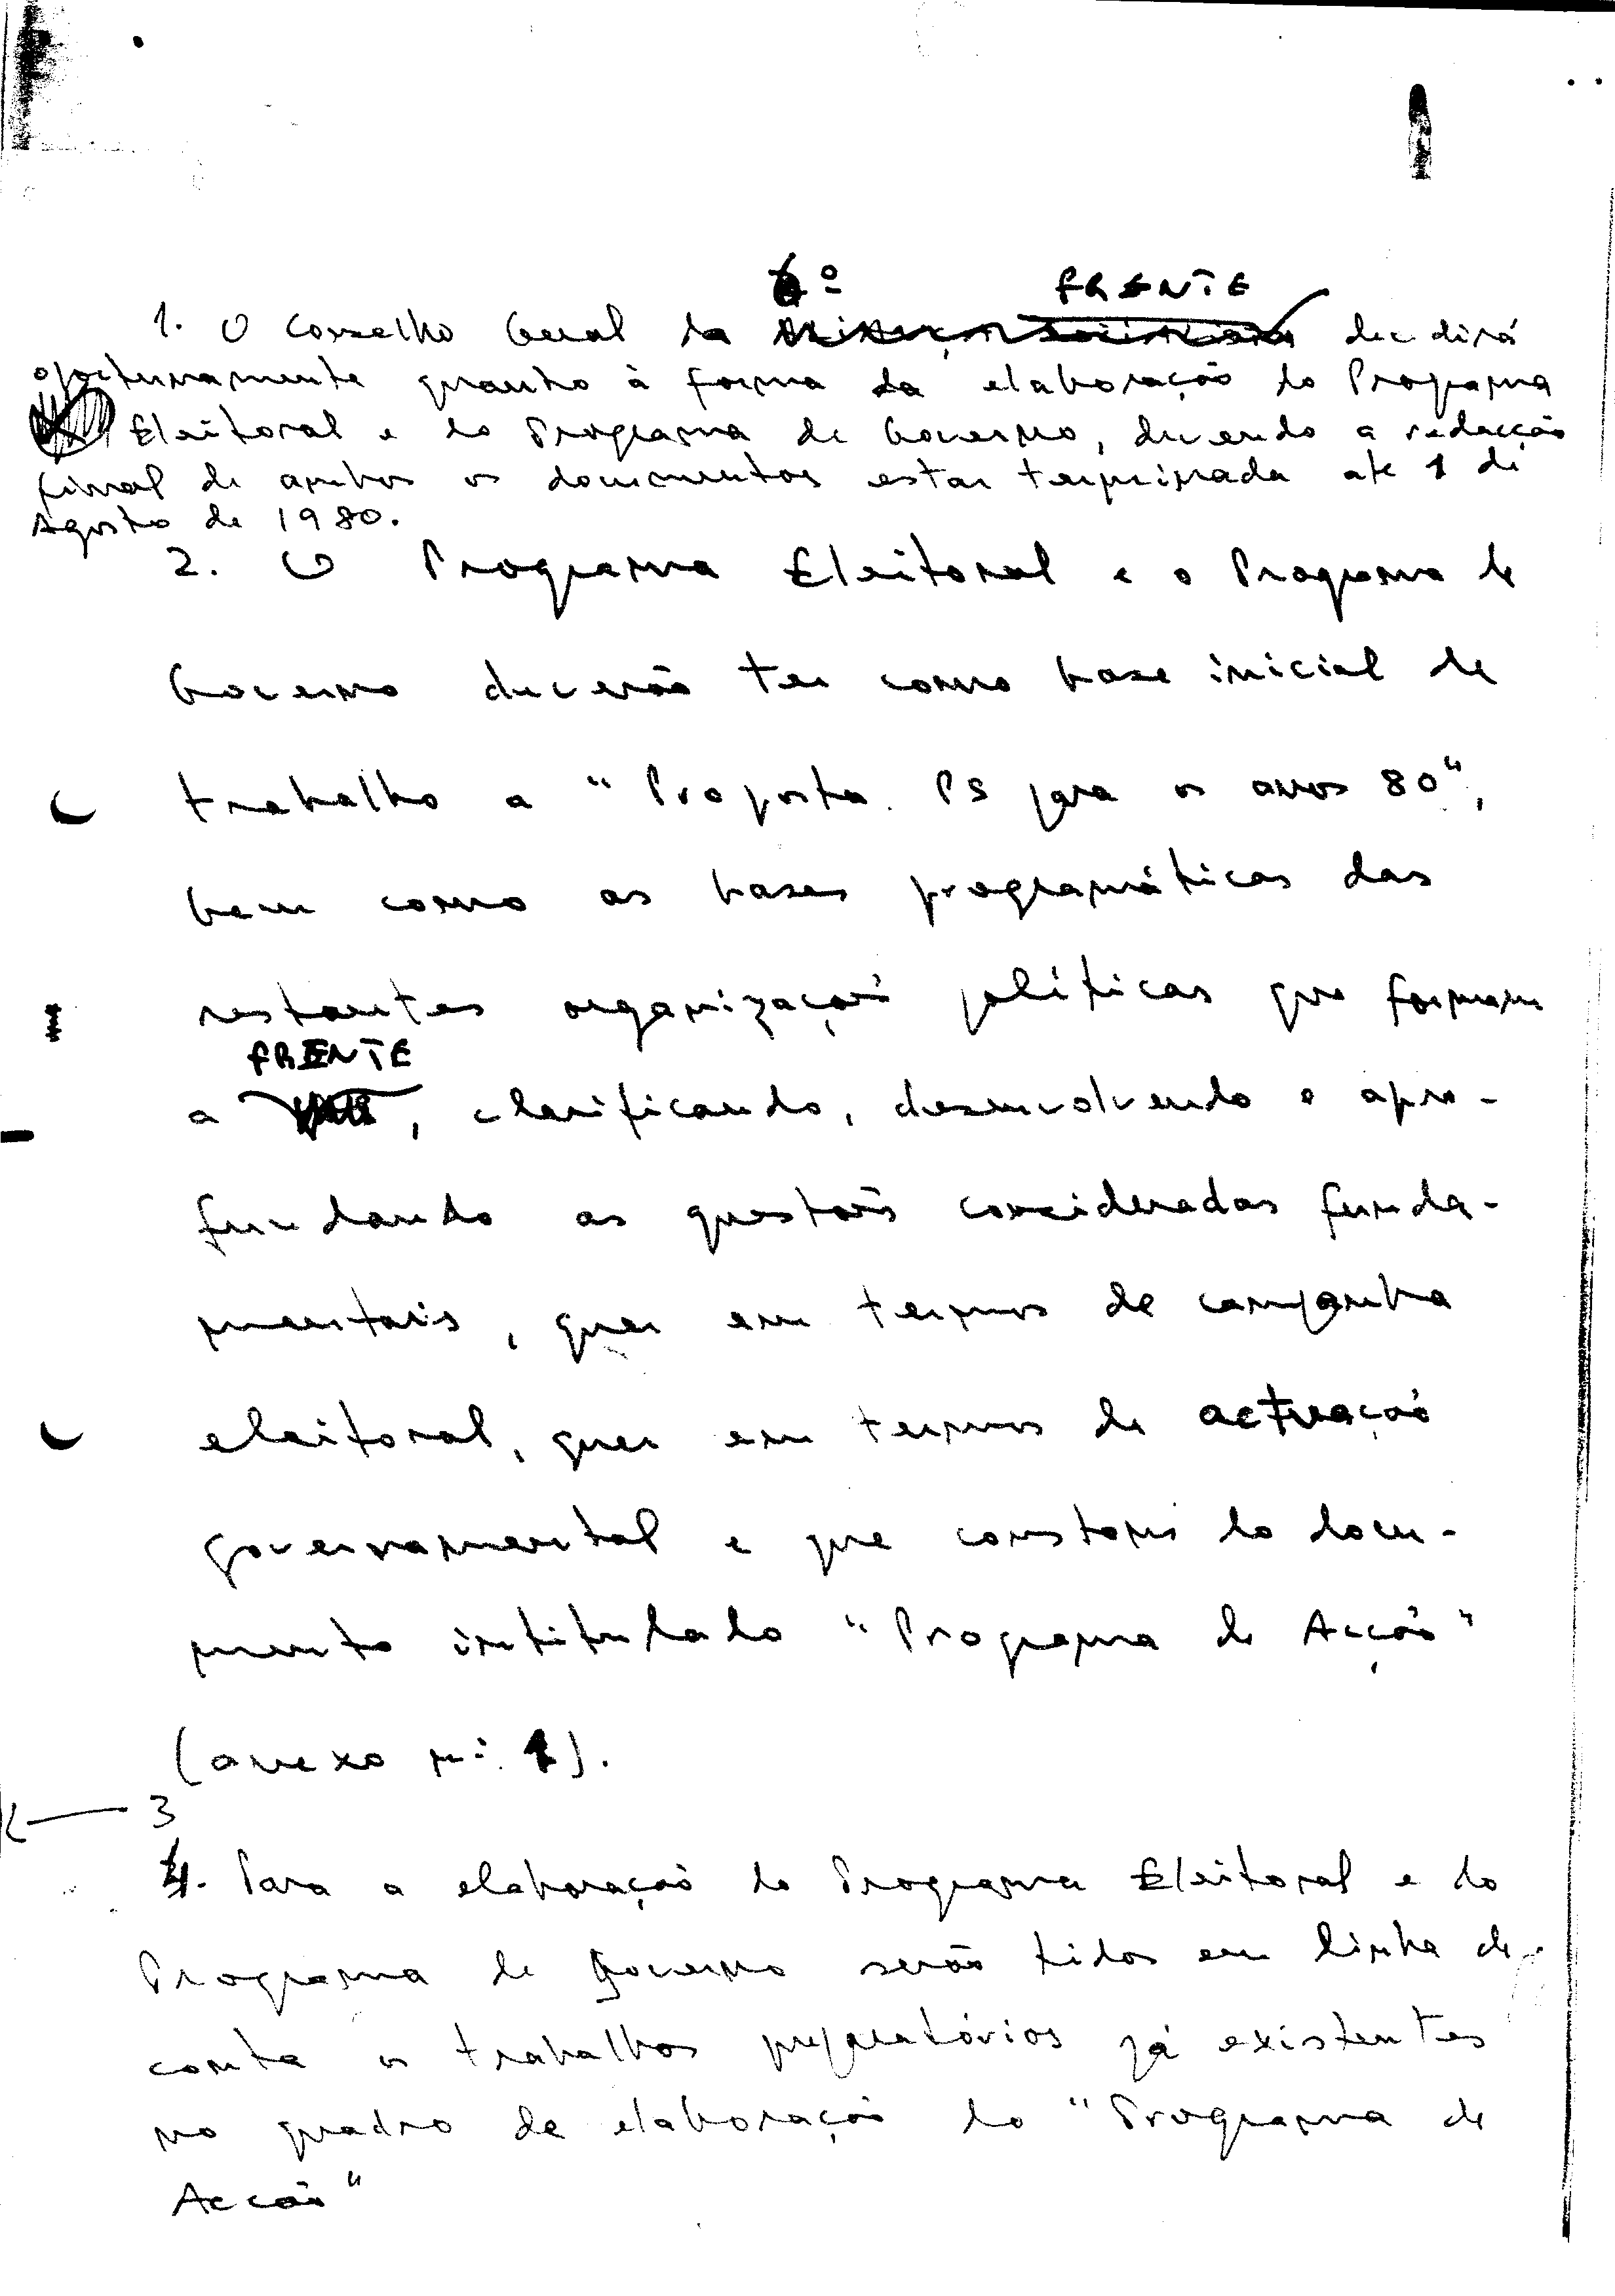 6º
FRENTE
1. O Conselho Geral da decidirá
oportunamente quanto à forma da elaboração do Programa
Eleitoral e do Programa de Governo, devendo a redacção
final de ambos os documentos estar terminada até 1 de
Agosto de 1980.
2. O Programa Eleitoral e o Programa de
Governo deverão ter como base inicial de
trabalho a "Proposta. PS para os anos 80",
bem como as bases programáticas das
restantes organizações políticas que formam
FRENTE
a , clarificando, desenvolvendo e apro-
fundando as questões consideradas funda-
mentais, quer em termos de campanha
eleitoral, quer em termos de actuação
governamental e que constam do docu-
mento intitulado "Programa de Acção"
(anexo nº. 1).
3
4. Para a elaboração do Programa Eleitoral e do
Programa de Governo serão tidos em linha de
conta os trabalhos preparatórios já existentes
no quadro de elaboração do "Programa de
Acção"